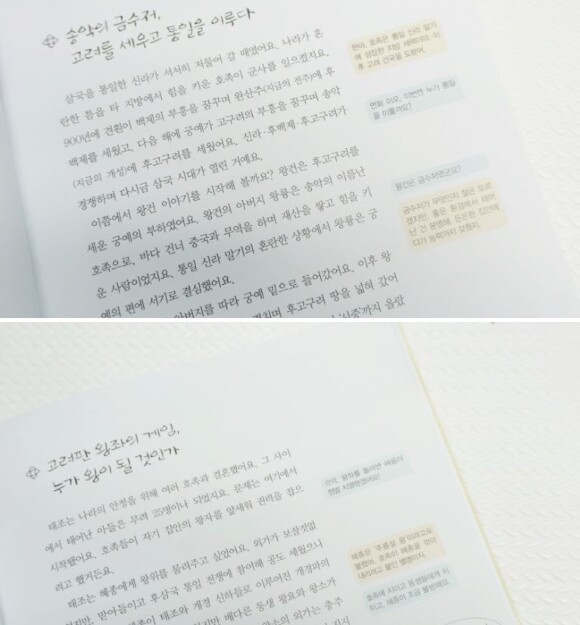 송악의 금수저,
고려를 세우고 통일을 이루다
삼국을 통일한 신라가 서서히 저물어 갈 때였어요. 나라가 혼
란한 틈을 타 지방에서 힘을 키운 호족이 군사를 일으켰지요.
900년에 견훤이 백제의 부흥을 꿈꾸며 완산주(지금의 전주)에 후
백제를 세웠고, 다음 해에 궁예가 고구려의 부흥을 꿈꾸며 송악
(지금의 개성)에 후고구려를 세웠어요. 신라·후백제·후고구려가
경쟁하며 다시금 삼국 시대가 열린 거예요.
이쯤에서 왕건 이야기를 시작해 볼까요? 왕건은 후고구려를
세운 궁예의 부하였어요. 왕건의 아버지 왕륭은 송악의 이름난
호족으로, 바다 건너 중국과 무역을 하며 재산을 쌓고 힘을 키
운 사람이었지요. 통일 신라 말기의 혼란한 상황에서 왕륭은 궁
예의 편에 서기로 결심했어요.
아버지를 따라 궁예 밑으로 들어갔어요. 이후 왕
후고구려 땅을 넓혀 갔어
올랐
현아, 호족은 통일 신라 말기
에 성장한 지방 세력이야. 이
후 고려 건국을 도왔어.
연화 이모, 이번엔 누가 통일
을 이룰까요?
왕건은 금수저였군요?
금수저가 무엇인지 잘은 모르
겠지만, 좋은 환경에서 태어
난 건 분명해. 든든한 집안에
다가 능력까지 갖췄지.
고려판 왕좌의 게임,
누가 왕이 될 것인가
태조는 나라의 안정을 위해 여러 호족과 결혼했어요. 그 사이
에서 태어난 아들은 무려 25명이나 되었지요. 문제는 여기에서
시작했어요. 호족들이 자기 집안의 왕자를 앞세워 권력을 잡으
려고 했거든요.
태조는 혜종에게 왕위를 물려주고 싶었어요. 외가가 보잘것없
맏아들이고 후삼국 통일 전쟁에 참여해 공도 세웠으니
태조와 개경 신하들로 이루어진 개경파의
배다른 동생 왕요와 왕소가
외가는 충주
으악, 왕좌를 둘러싼 싸움이
정말 치열했겠어요!
혜종은 '주름살 왕'이라고도
불렸어.
호족에 치이고 동생들에게 치
이고, 혜종이 조금 불쌍해요.